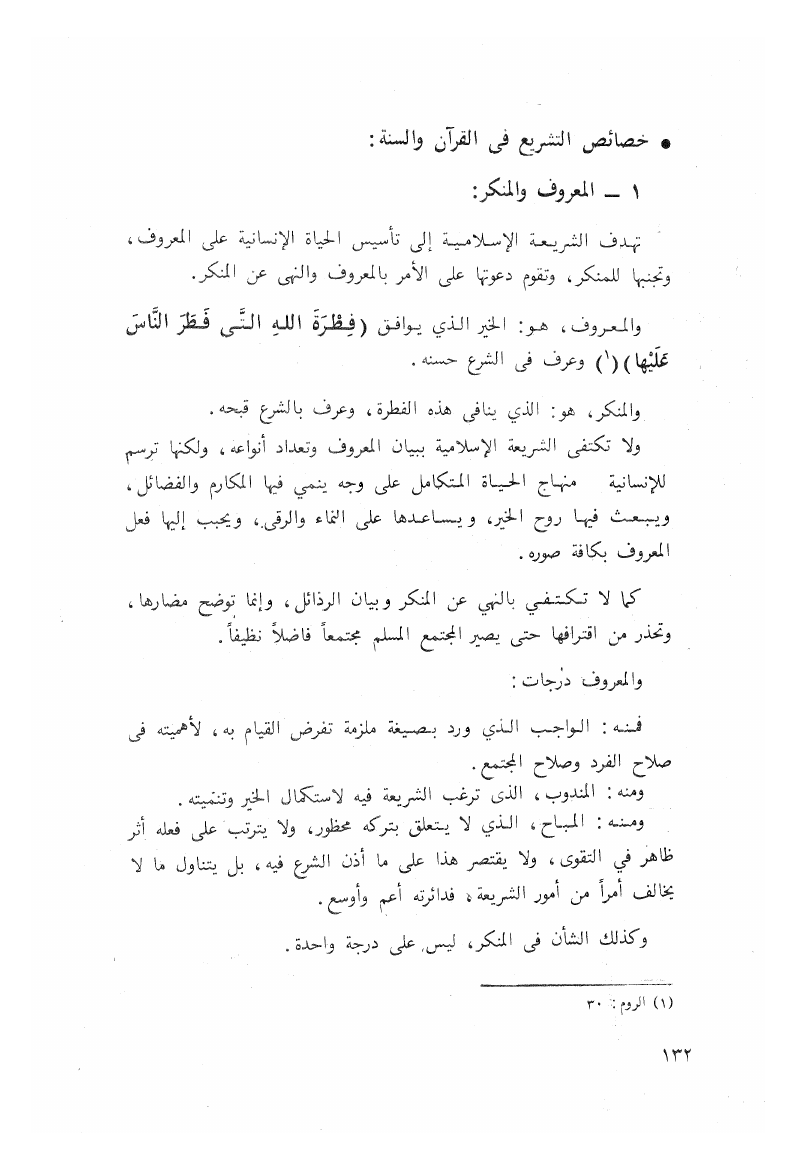 • خصائص التشريع فى القرآن والسنة:
١ ــ المعروف والمنكر:
تهدف الشريعة الإسلامية إلى تأسيس الحياة الإنسانية على المعروف،
وتجنبها للمنكر، وتقوم دعوتها على الأمر بالمعروف والنهى عن المنكر.
والمعروف، هو: الخير الذي يوافق (فِطْرَةَ اللهِ الَّتَّى فَطَرَ النَّاسَ
عَلَيْها)(١) وعرف فى الشرع حسنه.
والمنكر، هو: الذي ينافى هذه الفطرة، وعرف بالشرع قبحه.
ولا تكتفى الشريعة الإسلامية ببيان المعروف وتعداد أنواعه، ولكنها ترسم
للإنسانية منهاج الحياة المتكامل على وجه ينمي فيها المكارم والفضائل،
ويبعث فيها روح الخير، ويساعدها على النماء والرقى، ويحبب إليها فعل
المعروف بكافة صوره.
كما لا تكتفي بالنهي عن المنكر وبيان الرذائل، وإنما توضح مضارها،
وتحذر من اقترافها حتى يصير المجتمع المسلم مجتمعاً فاضلاً نظيفاً.
والمعروف درجات:
فمنه: الواجب الذي ورد بصيغة ملزمة تفرض القيام به، لأهميته فى
صلاح الفرد وصلاح المجتمع.
ومنه: المندوب، الذى ترغب الشريعة فيه لاستكمال الخير وتنميته.
ومنه: المباح، الذي لا يتعلق بتركه محظور، ولا يترتب على فعله أثر
ظاهر في التقوى، ولا يقتصر هذا على ما أذن الشرع فيه، بل يتناول ما لا
يخالف أمراً من أمور الشريعة، فدائرته أعم وأوسع.
وكذلك الشأن فى المنكر، ليس على درجة واحدة.
(١) الروم: ٣٠
١٣٢